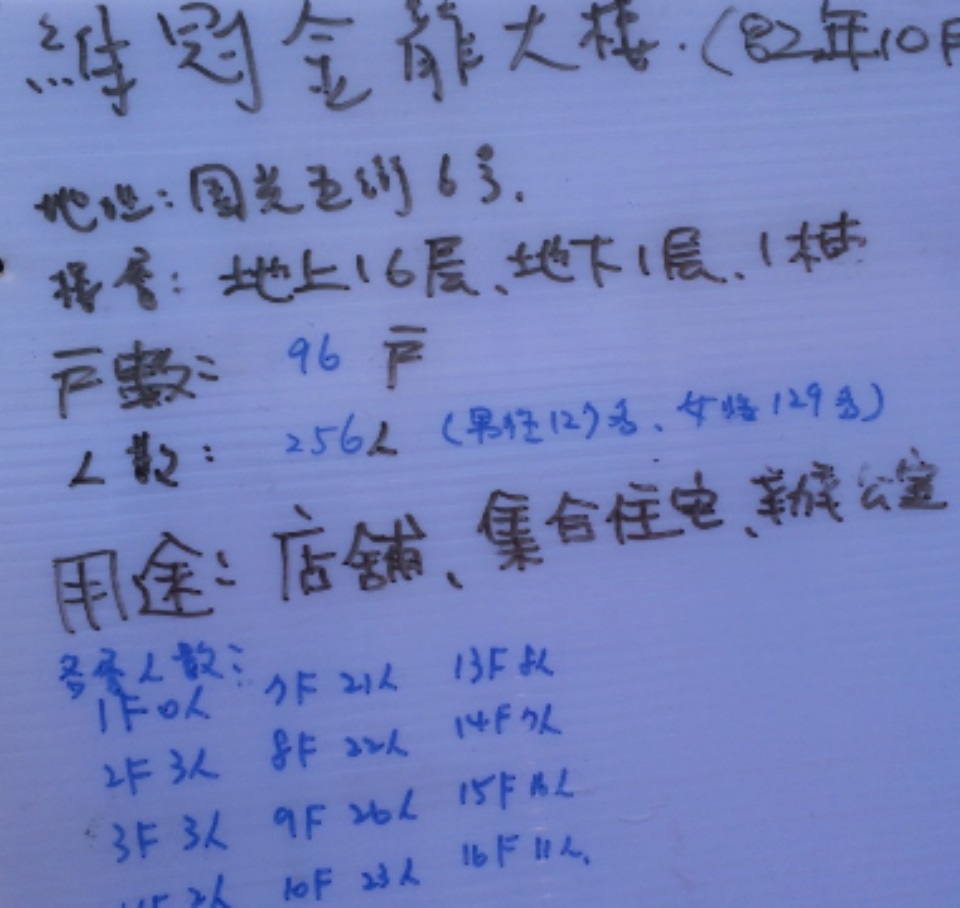 維冠金龍大樓.(82年10月
地址:国光五街6号.
樓層:地上16层、地下1层、1棟
戶數: 96 戶
人數: 256人 (男性127名、女性129名)
用途:店舖、集合住宅、辦公室
各層人數:
1F 0人 7F 21人 13F 8人
2F 3人 8F 22人 14F 7人
3F 3人 9F 26人 15F 人
2人 10F 23人 16F 11人.